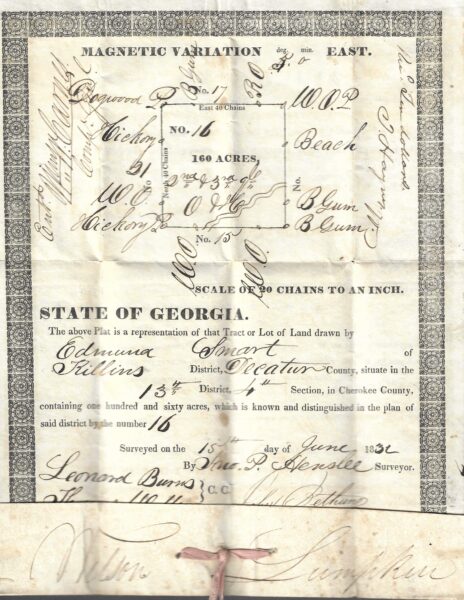 MAGNETIC VARIATION 5 deg. 0 min. EAST.
No. 17
Dogwood P
East 40 Chains
R O
W.O.P
Hickory
No. 16
Beach
160 ACRES,
North 40 Chains
No. 21
2nd & 3rd ql
No.
W.O.
O & H
B Gum
Hickory P
B Gum
No. 15
W.O.
W.O.
SCALE OF 20 CHAINS TO AN INCH.
STATE OF GEORGIA.
The above Plat is a representation of that Tract or Lot of Land drawn by
Edmund Smart of
Killins District, Decatur County, situate in the
13th District, 4th Section, in Cherokee County,
containing one hundred and sixty acres, which is known and distinguished in the plan of
said district by the number 16
Surveyed on the 15th day of June 1832
By Jno. P. Hensley Surveyor.
Leonard Burns
C. C.
Wilson Lumpkin